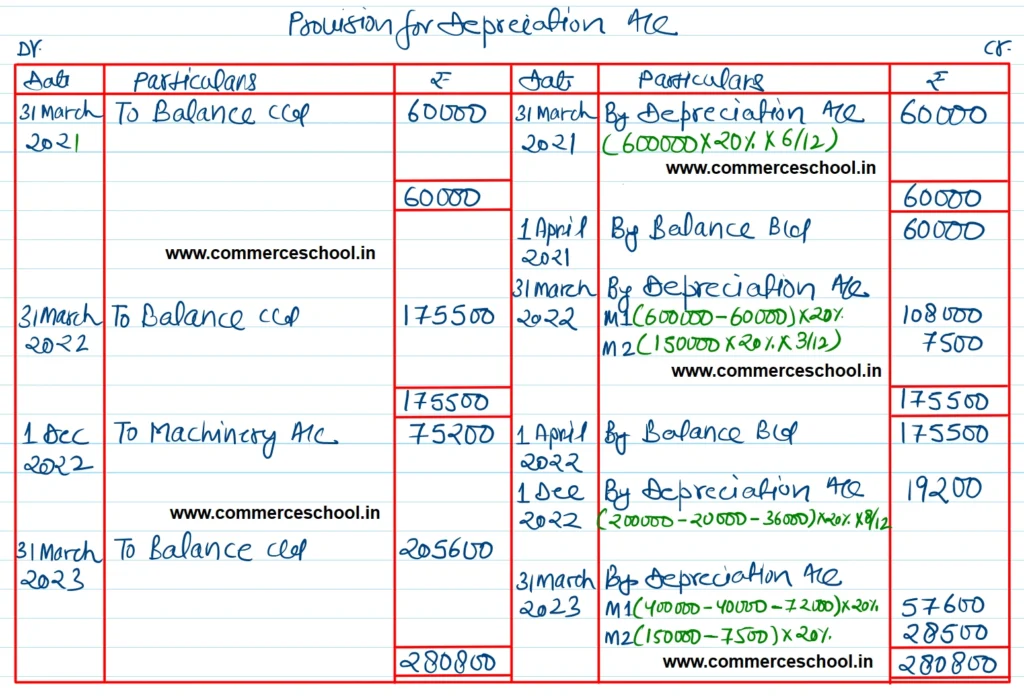 Provision for Depreciation A/c
Dr. Cr.
Date Particulars ₹ Date Particulars ₹
31 March To Balance c/d 60000 31 March By Depreciation A/c 60000
2021 2021 (600000×20%×6/12)
www.commerceschool.in
60000 60000
1 April By Balance B/d 60000
2021
www.commerceschool.in
31 March By Depreciation A/c
31 March To Balance c/d 175500 2022 M1(600000-60000)×20% 108000
2022 M2(150000×20%×3/12) 7500
www.commerceschool.in
175500 175500
1 Dec To Machinery A/c 75200 1 April By Balance B/d 175500
2022 2022
1 Dec By Depreciation A/c 19200
www.commerceschool.in
2022 (200000-20000-36000)×20%×8/12
31 March To Balance c/d 205600
2023 31 March By Depreciation A/c
2023 M1(400000-40000-72000)×20% 57600
M2(150000-7500)×20% 28500
280800 www.commerceschool.in 280800